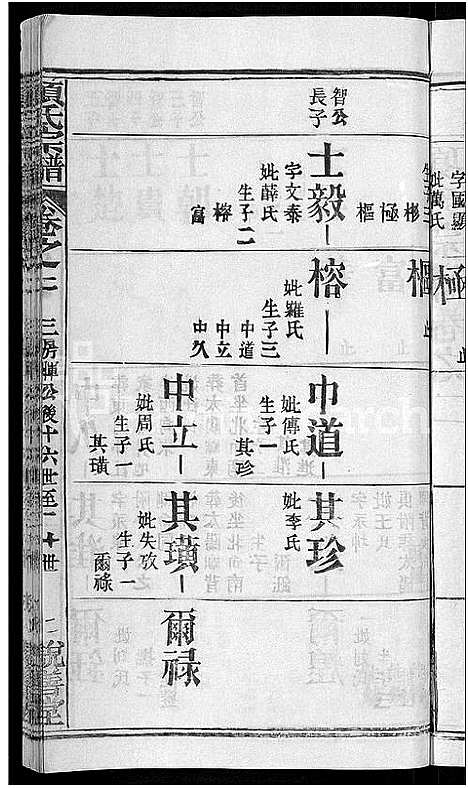 字國顯
妣萬氏
極
止
生子三
彬
極
樞
樞
止
智公
長子
士毅
字文泰
妣薛氏
生子二
榕
富
榕
妣羅氏
生子三
中道
中立
中久
中道
妣傅氏
生子一
其珍
其珍
妣李氏
中立
妣周氏
生子一
其璜
其璜
妣失攷
生子一
爾祿
爾祿
項氏宗譜
卷之二
三房暉公後十六世至二十世
二
說善堂